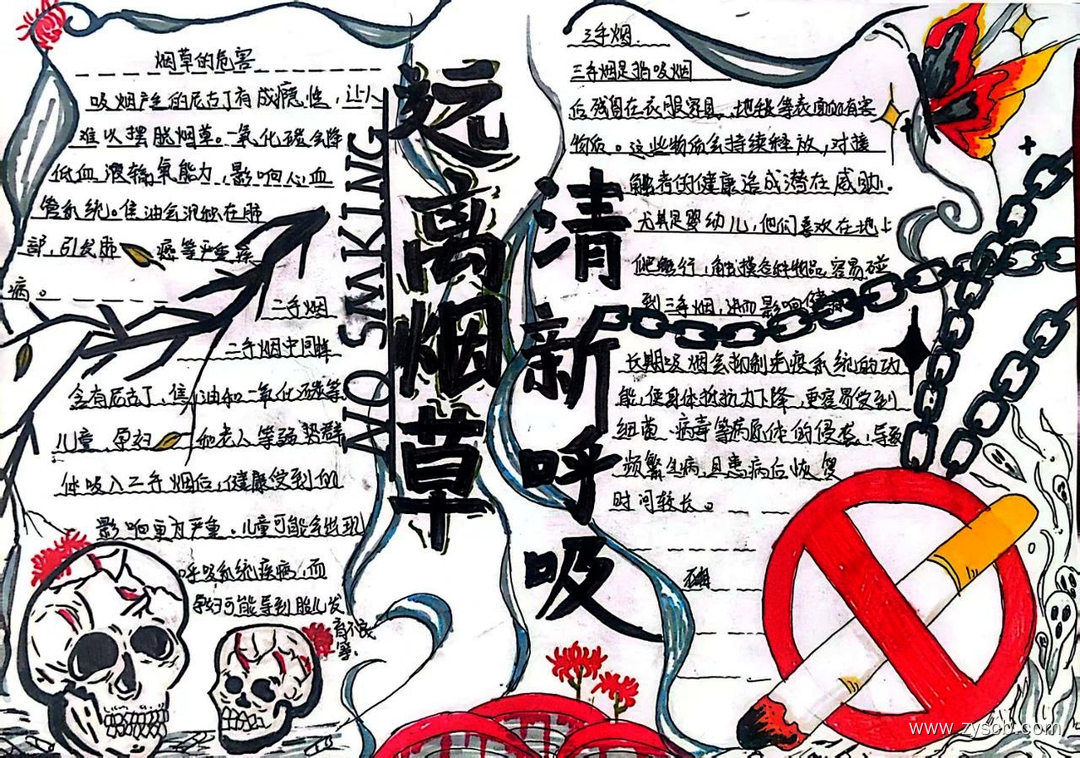 烟草的危害
吸烟产生的尼古丁有成瘾性，让人
难以摆脱烟草。一氧化碳会降
低血液输氧能力，影响心血
管系统。焦油会沉积在肺
部，引发肺癌等严重疾
病。
二手烟
二手烟中同样
含有尼古丁，焦油和一氧化碳等
儿童、孕妇和老人等弱势群
体吸入二手烟后，健康受到的
影响更为严重。儿童可能会出现
呼吸系统疾病，而
孕妇可能导致胎儿发
育不良
等。
NO SMKING
远离烟草
清新呼吸
三手烟
三手烟是指吸烟
后残留在衣服家具、地毯等表面的有害
物质。这些物质会持续释放，对接
触者的健康造成潜在威胁。
尤其是婴幼儿，他们喜欢在地上
爬行，触摸各种物品容易碰
到三手烟，进而影响健康
长期吸烟会抑制免疫系统的功
能，使身体抵抗力下降，更容易受到
细菌、病毒等病原体的侵袭，导致
频繁生病，且患病后恢复
时间较长。